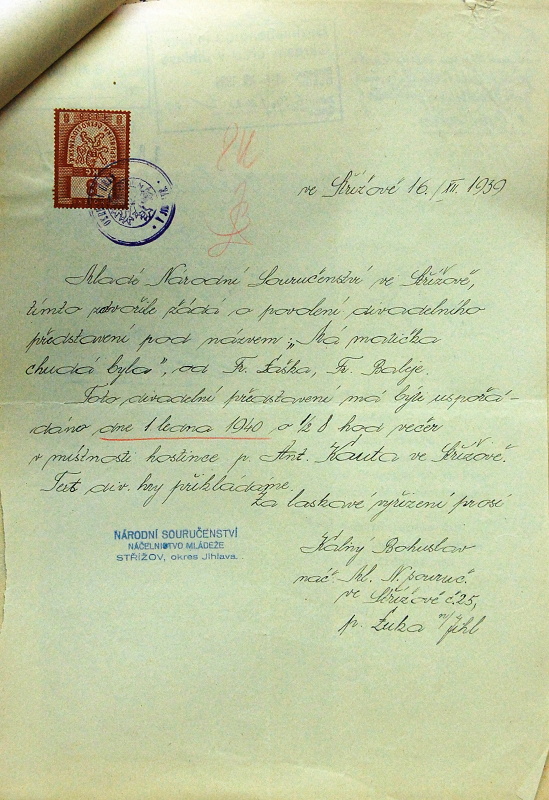 8
KČ
8K
ve Střížově 16./XII. 1939
Mladé Národní Souručenství ve Střížově,
tímto zdvořile žádá o povolení divadelního
představení pod názvem: „Má matička
chudá byla", od Fr. Žáška, Fr. Baleje.
Toto divadelní představení má býti uspořá-
dáno dne 1 ledna 1940 o 1/2 8 hod večer
v místnosti hostince p. Ant. Kauta ve Střížově.
Text div. hry přikládame.
Za laskavé vyřízení prosí
NÁRODNÍ SOURUČENSTVÍ
NÁČELNICTVO MLÁDEŽE
STŘÍŽOV, okres Jihlava.
Kalný Bohuslav
náč. Ml. N. souruč.
ve Střížově č. 25,
p. Luka n/Jihl